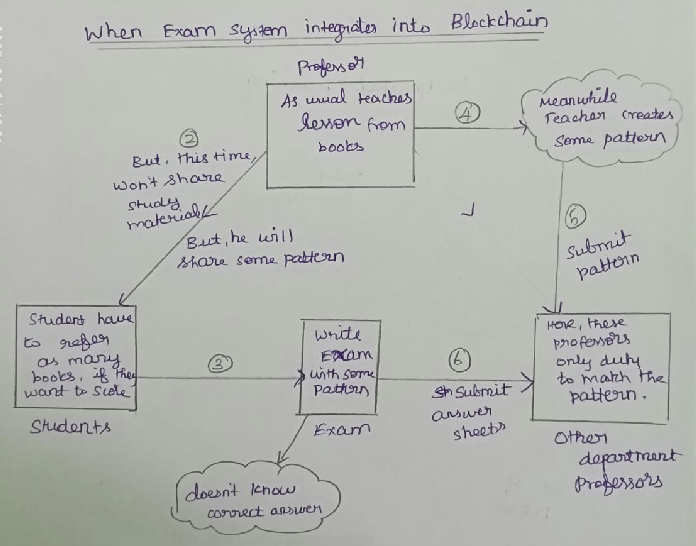 When Exam system integrates into Blockchain
Professor
As usual teaches
lesson from
books
④
Meanwhile
Teacher creates
some pattern
②
But, this time,
won't share
study
material
But, he will
share some pattern
⑤
Submit
pattern
Student have
to refer
as many
books, if they
want to score
Students
③
Write
Exam
with some
pattern
Exam
⑥
Submit
answer
sheets
Here, these
professors
only duty
to match the
pattern.
Other
department
Professors
doesn't know
correct answer